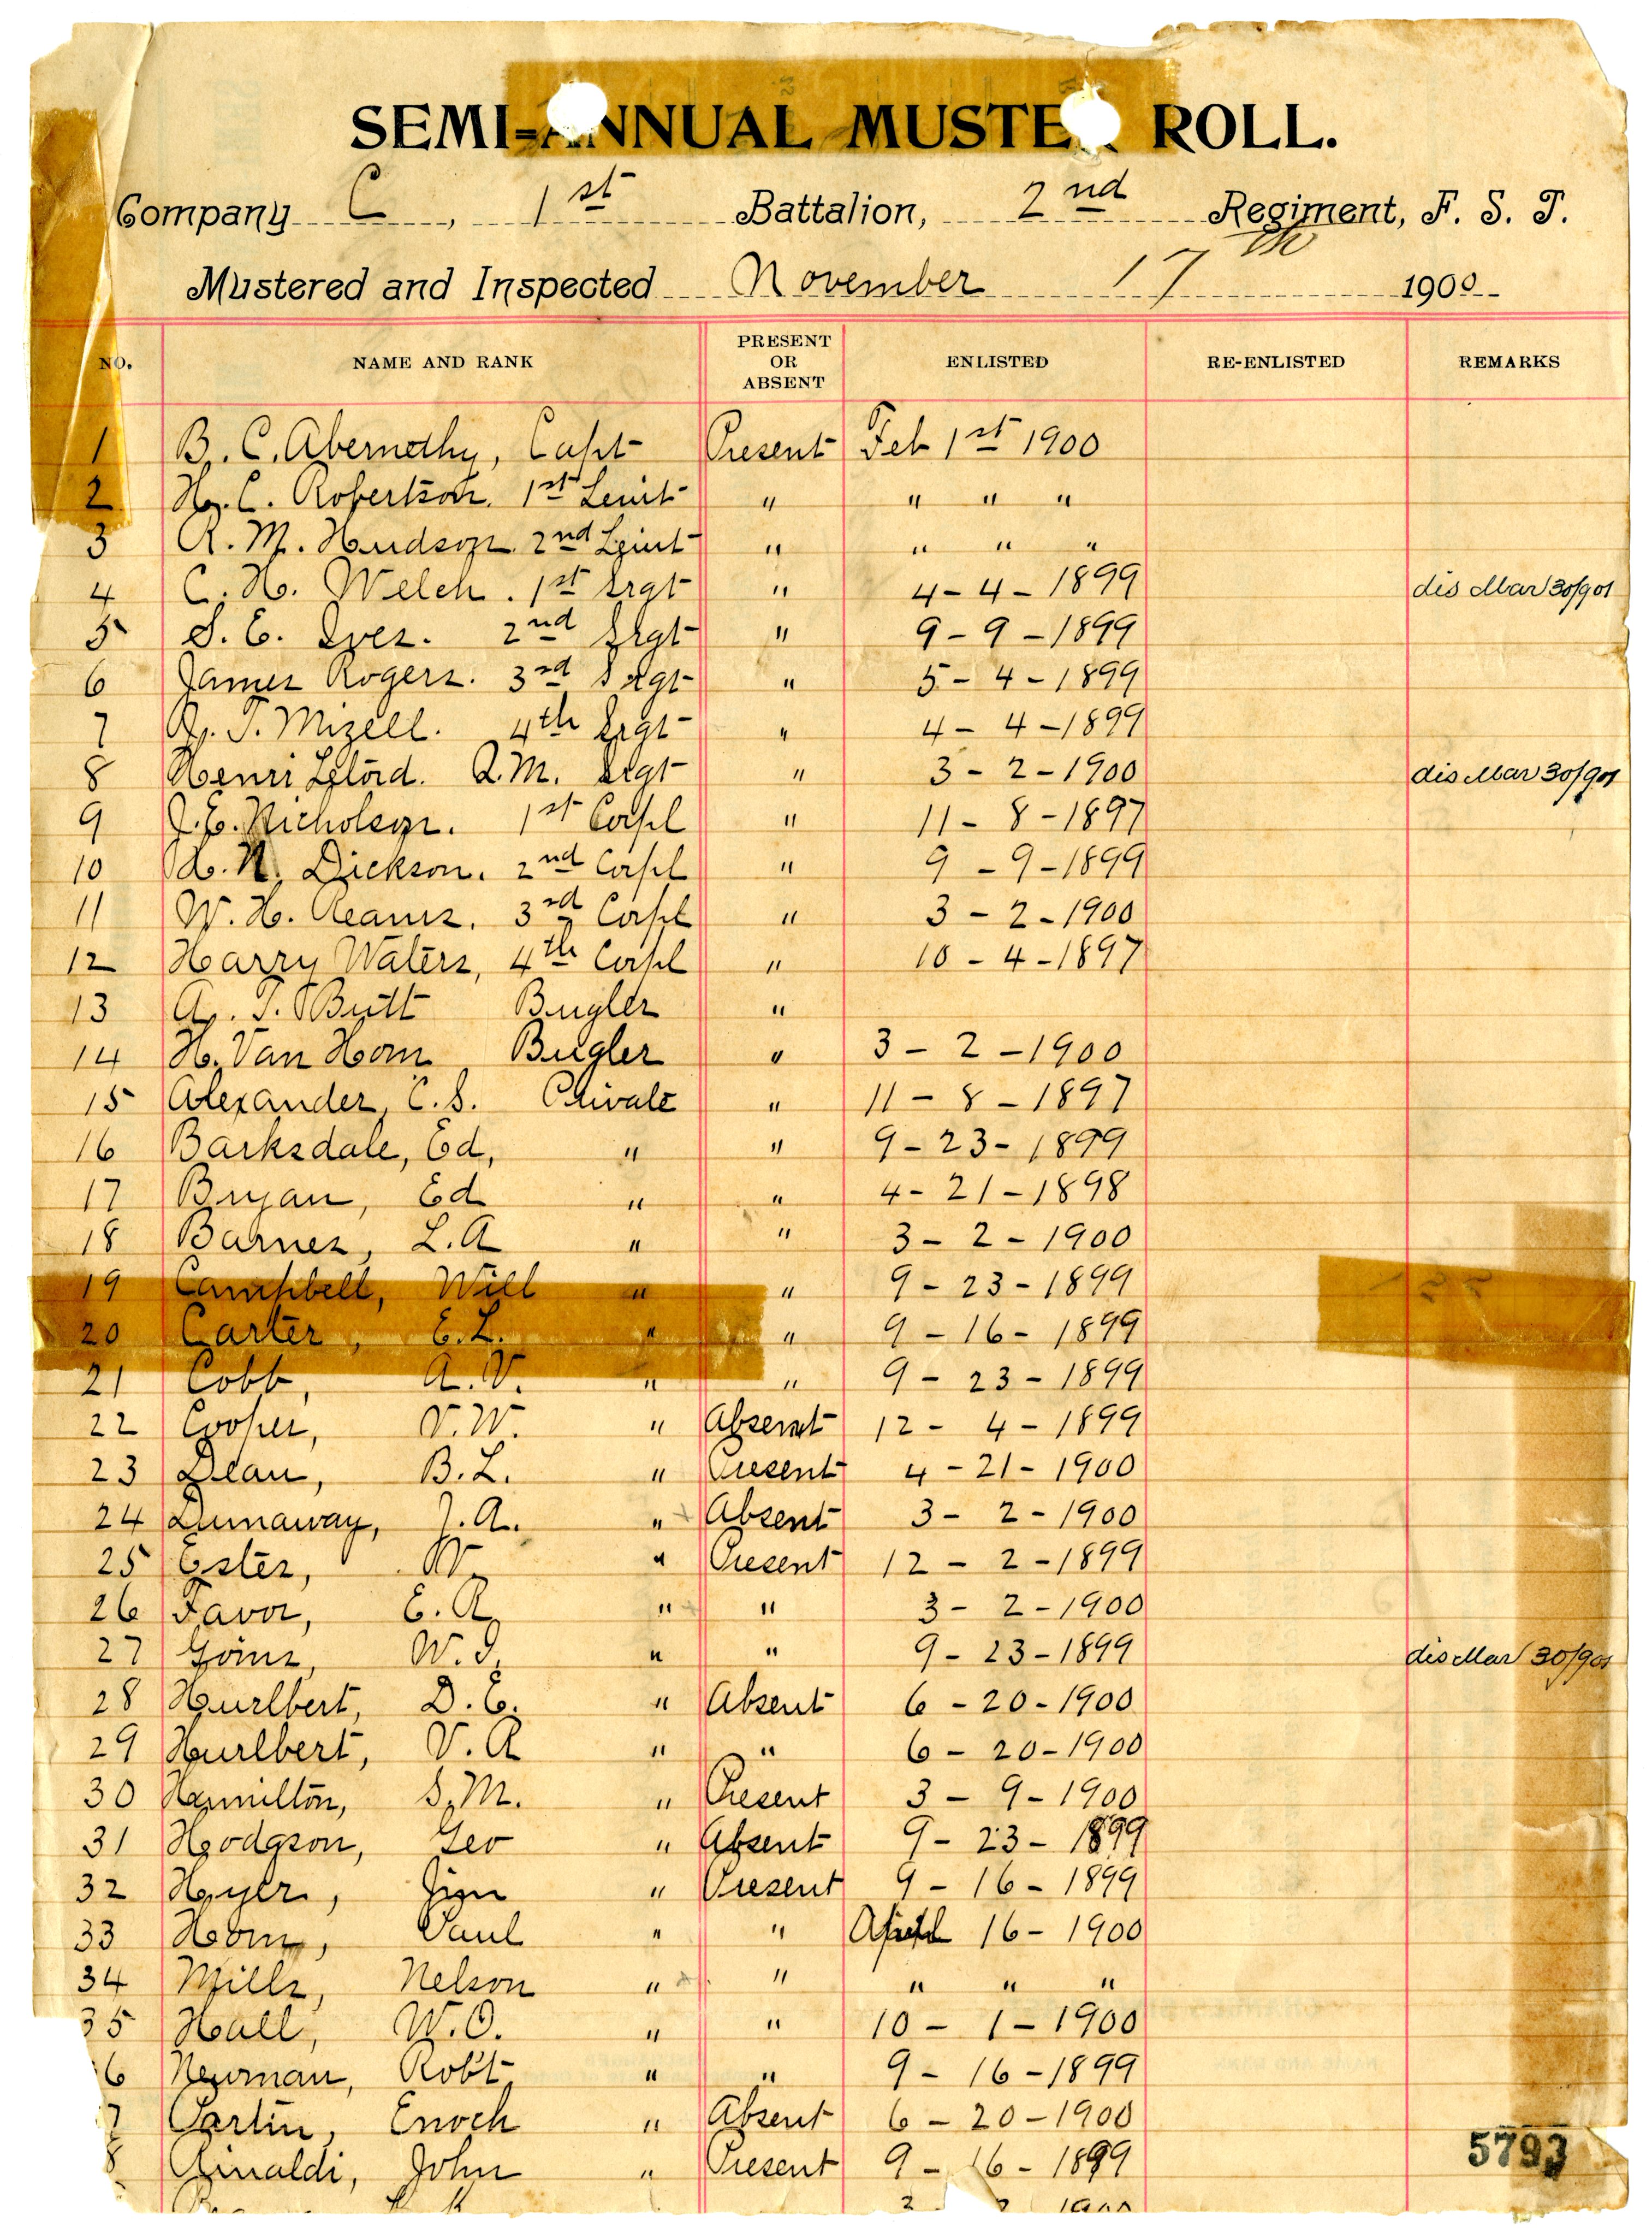 SEMI=ANNUAL MUSTER ROLL.
Company C, 1st Battalion, 2nd Regiment, F. S. T.
Mustered and Inspected November 17th 1900
NO. NAME AND RANK PRESENT OR ABSENT ENLISTED RE-ENLISTED REMARKS
1 B. C. Abernethy, Capt Present Feb 1st 1900
2 H. C. Robertson. 1st Leuit " " " "
3 R. M. Hudson. 2nd Leiut " " " "
4 C. H. Welch. 1st Srgt " 4-4-1899 dis Mar 30/901
5 S. E. Ives. 2nd Srgt " 9-9-1899
6 James Rogers. 3rd Srgt " 5-4-1899
7 T. Mizell. 4th Srgt " 4-4-1899
8 Henri Q.M. Srgt " 3-2-1900 dis Mar 30/901
9 J. E. Nicholson. 1st Corpl " 11-8-1897
10 N. Dickson. 2nd Corpl " 9-9-1899
11 W. H. Reams. 3rd Corpl " 3-2-1900
12 Harry Waters, 4th Corpl " 10-4-1897
13 A. T. Butt Bugler "
14 H. Van Horn Bugler " 3-2-1900
15 Alexander, C. S. Private " 11-8-1897
16 Barksdale, Ed, " " 9-23-1899
17 Bryan, Ed " " 4-21-1898
18 Barnes, L. A " " 3-2-1900
19 Campbell, Will " " 9-23-1899
20 Carter, E. L. " " 9-16-1899
21 Cobb, A. V. " " 9-23-1899
22 Cooper, V. W. " Absent 12-4-1899
23 Dean, B. L. " Present 4-21-1900
24 Dunaway, J. A. " Absent 3-2-1900
25 Estes, W. " Present 12-2-1899
26 Favor, E. R. " " 3-2-1900
27 Goins, W. I. " " 9-23-1899 dis Mar 30/901
28 Hurlbert, D. E. " Absent 6-20-1900
29 Hurlbert, V. R " " 6-20-1900
30 Hamilton, S. M. " Present 3-9-1900
31 Hodgson, Geo " Absent 9-23-1899
32 Hyer, Jim " Present 9-16-1899
33 Horn, Paul " " April 16-1900
34 Mills, Nelson " " " " "
35 Hall, W. O. " " 10-1-1900
6 Newman, Robt. " " 9-16-1899
7 Partin, Enoch " Absent 6-20-1900
8 Rinaldi, John " Present 9-16-1899
5793